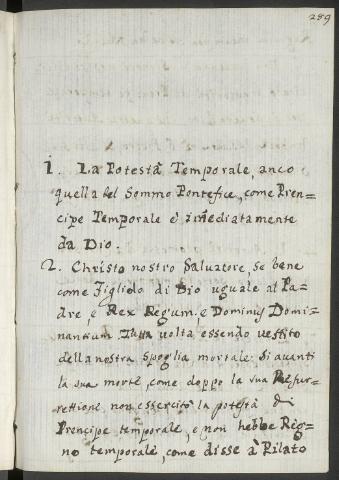 289
1. La Potestà Temporale anco
quella del Sommo Pontefice, come Pren=
cipe Temporale è im̄ediatamente
da Dio.
2. Christo nostro Salvatore, se bene
come Figliolo di Dio uguale al Pa=
dre, e Rex Regum, e Dominus Domi=
nantium Tutta volta essendo vestito
della nostra spoglia mortale si avanti
la sua morte, come doppo la sua Resur=
rettione non essercitò la potestà di
Prencipe temporale, e non hebbe Reg=
no temporale, come disse à Pilato